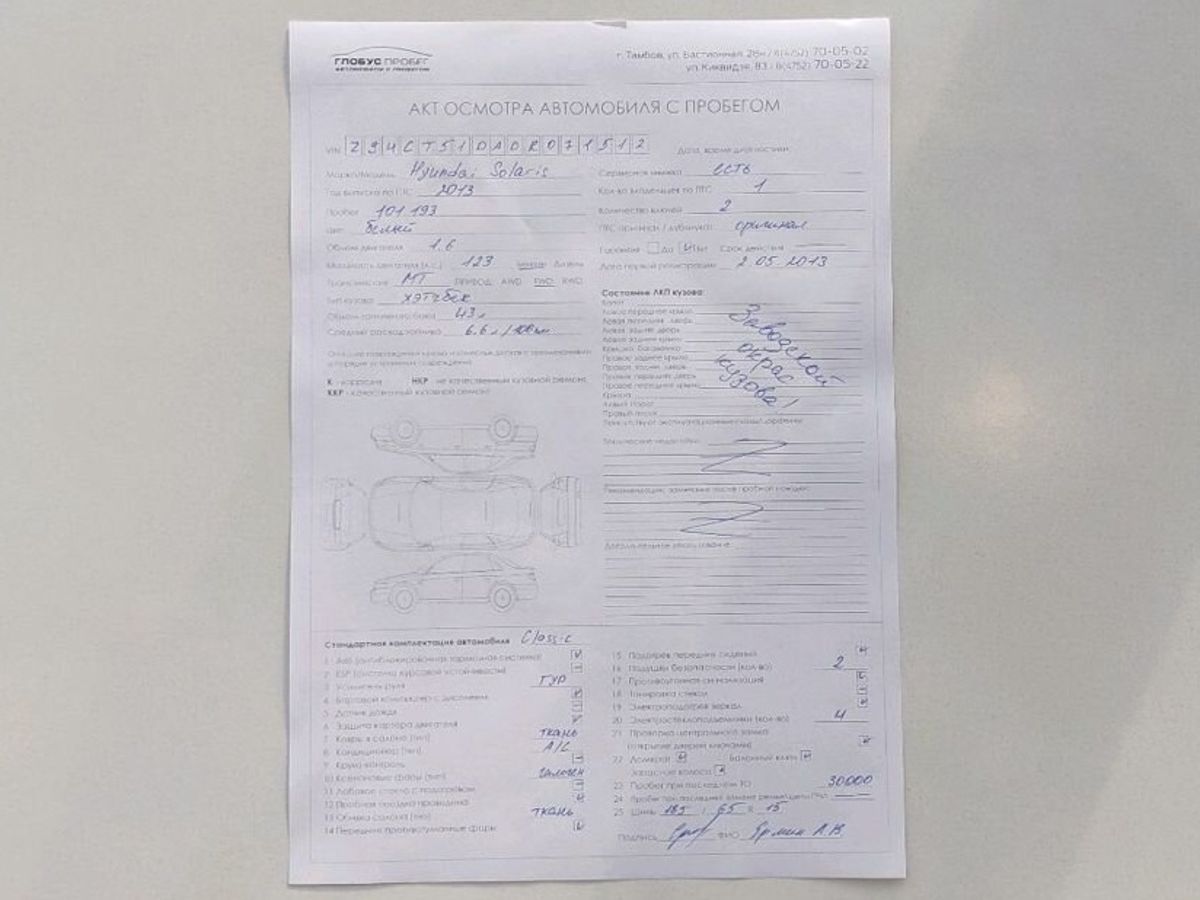 ГЛОБУС ПРОБЕГ
АВТОМОБИЛИ С ПРОБЕГОМ
г. Тамбов, ул. Бастионная, 28н / 8(4752) 70-05-02
ул. Киквидзе, 83 / 8(4752) 70-05-22
АКТ ОСМОТРА АВТОМОБИЛЯ С ПРОБЕГОМ
VIN Z94CT51DADR071512
Дата, время диагностики:
Марка/Модель Hyundai Solaris
Год выпуска по ПТС 2013
Пробег 101 193
Цвет белый
Объем двигателя 1.6
Мощность двигателя (л.с.) 123 Бензин Дизель
Трансмиссия МТ ПРИВОД: AWD FWD RWD
Тип кузова хэтчбек
Объем топливного бака 43 л
Средний расход топлива 6.6 л/100км
Сервисная книжка есть
Кол-во владельцев по ПТС 1
Количество ключей 2
ПТС оригинал / дубликат оригинал
Гарантия Да Нет Срок действия
Дата первой регистрации 2.05.2013
К - коррозия НКР - не качественный кузовной ремонт,
ККР - качественный кузовной ремонт
Состояние ЛКП кузова:
Капот
Левое переднее крыло
Левая передняя дверь
Левая задняя дверь
Левое заднее крыло
Крышка багажника
Правое заднее крыло
Правая задняя дверь
Правая передняя дверь
Правое переднее крыло
Крыша
Левый порог
Правый порог
Заводской
окрас
кузова!
Присутствуют эксплуатационные сколы, царапины
Технические недостатки:
Рекомендации, замечания после пробной поездки:
Стандартная комплектация автомобиля Classic
1 ABS (антиблокировочная тормозная система)
2 ESP (система курсовой устойчивости)
3 Усилитель руля ГУР
4 Бортовой компьютер с дисплеем
5 Датчик дождя
6 Защита картера двигателя
7 Ковры в салоне (тип) ткань
8 Кондиционер (тип) A/C
9 Круиз-контроль
10 Ксеноновые фары (тип) галоген
11 Лобовое стекло с подогревом
12 Пробная поездка проведена
13 Обивка салона (тип) ткань
14 Передние противотуманные фары
15 Подогрев передних сидений
16 Подушки безопасности (кол-во) 2
17 Противоугонная сигнализация
18 Тонировка стекол
19 Электроподогрев зеркал
20 Электростеклоподъемники (кол-во) 4
21 Проверка центрального замка
(открытие дверей ключами)
22 Домкрат Балонный ключ
Запасное колесо
23 Пробег при последнем ТО 30000
24 Пробег при последней замене ремня/цепи ГРМ
25 Шины 185 / 65 R 15
Подпись ФИО